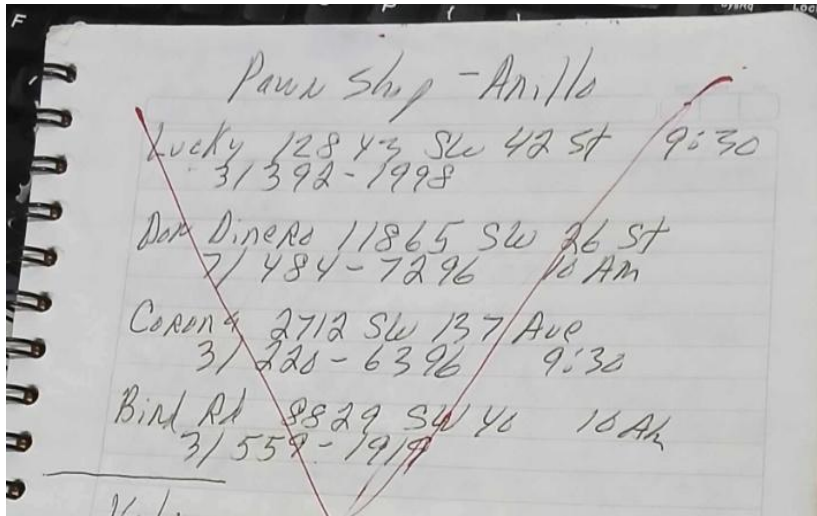 Pawn Shop - Anillo
Lucky 12843 SW 42 St 9:30
3/ 392-1998
Don Dinero 11865 SW 26 St
7/ 484-7296 10 Am
Corona 2712 SW 137 Ave
3/ 220-6396 9:30
Bird Rd 8829 SW 40 10 Am
3/ 559-1919